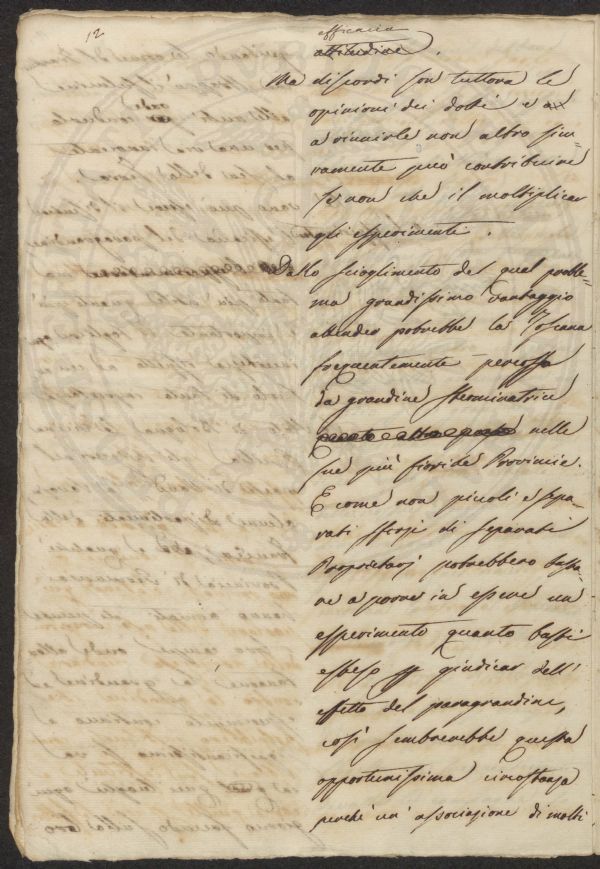 12
efficacia
attitudine.
Ma discordi son tuttora le
opinioni dei dotti e a
a riunirle non altro sicu-
ramente può contribuire
se non che il moltiplicar
gli esperimenti.
Dallo scioglimento del qual proble-
ma grandissimo vantaggio
attender potrebbe la Toscana
frequentemente percossa
da grandine sterminatrice
nelle
sue più fiorite Provincie.
E come non piccoli e sepa-
rati sforzi di separati
Proprietarj potrebbero basta-
re a porre in essere un
esperimento quanto basti
esteso p giudicar dell'
effetto del paragrandine,
così sembrerebbe questa
opportunissima circostanza
perché un'associazione di molti